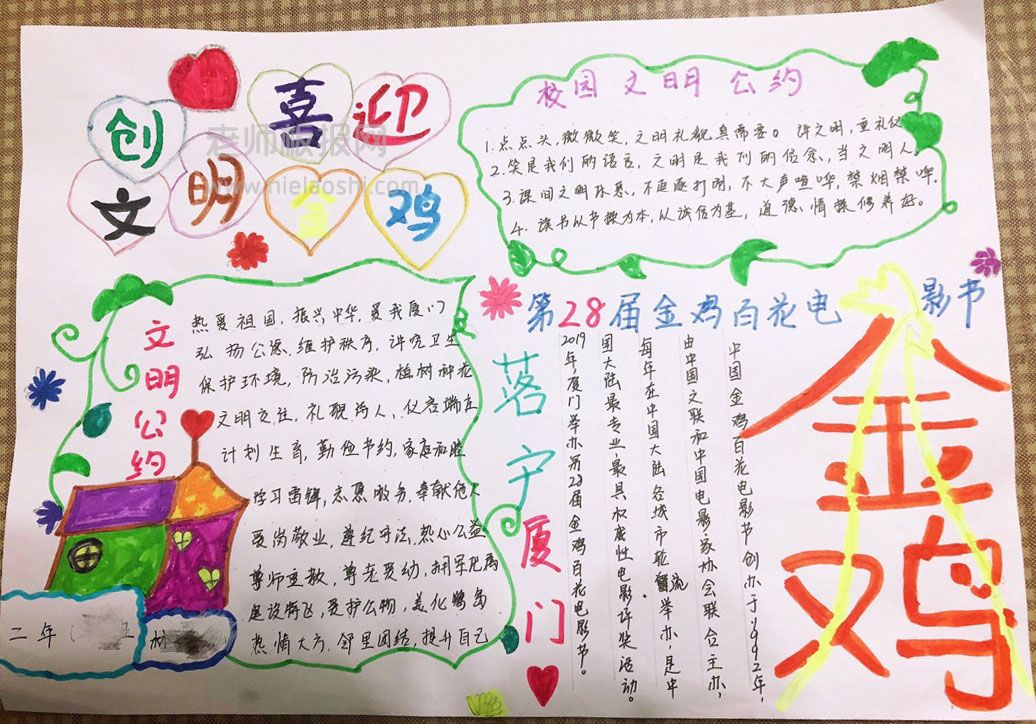 创 喜迎
文明 金鸡
老师板报网
www.nielaoshi.com
校园文明公约
1.点点头,微微笑,文明礼貌真需要。讲文明,重礼仪
2.笑是我们的语言,文明是我们的信念,当文明人。
3.课间文明休息,不追逐打闹,不大声喧哗,禁烟禁哗.
4.读书以书操为本,从诚信为基,道德情操修养好。
文明公约
热爱祖国,振兴中华,爱我厦门
弘扬公德,维护秩序,讲究卫生
保护环境,防治污染,植树种花
文明交往,礼貌待人,仪容端庄
计划生育,勤俭节约,家庭和睦
学习雷锋,志愿服务,奉献他人
爱岗敬业,遵纪守法,热心公益
尊师重教,尊老爱幼,拥军
建设特区,爱护公物,美化鹭岛
热情大方,邻里团结,提升自己
二年
第28届金鸡百花电影节
落宁厦门
中国金鸡百花电影节创办于1992年,
由中国文联和中国电影家协会联合主办,
每年在中国大陆各城市轮流举办,是中
国大陆最专业,最具权威性电影评奖活动。
2019年,厦门举办第28届金鸡百花电影节。
金鸡